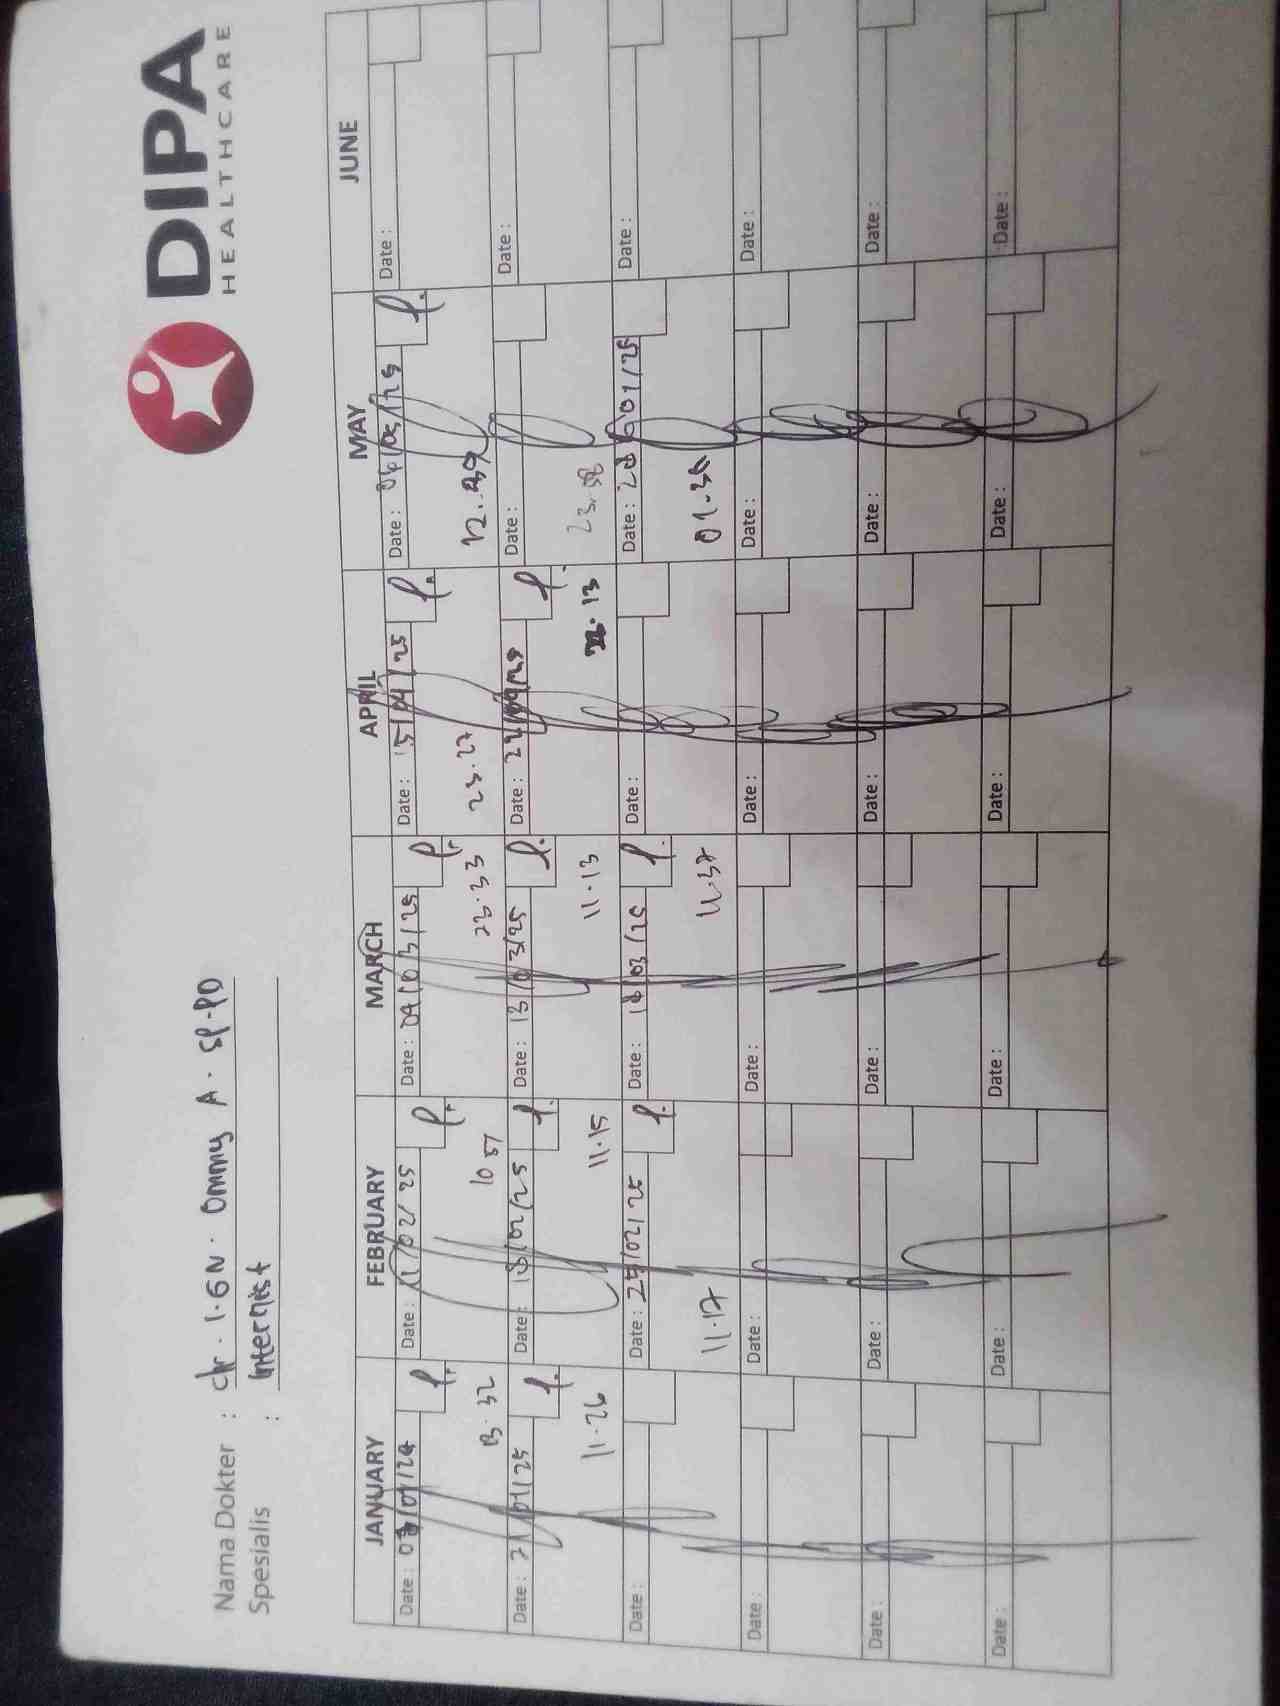 DIPA
HEALTHCARE
Nama Dokter : dr. I.GN. Ommy A. SP-PD
Spesialis : Internist
JANUARY FEBRUARY MARCH APRIL MAY JUNE
Date : /01/24 Date : 11/02/25 Date : 04/03/25 Date : 15/04/25 Date : 06/05/25 Date :
13.32 10 51 23.33 23.27 12.49
Date : 21/01/25 Date : 18/02/25 Date : 13/03/25 Date : 22/04/25 Date : Date :
11.26 11.15 11.13 22.13 23.58
Date : Date : 25/02/25 Date : 18/03/25 Date : Date : 28 01/25 Date :
11.17 11.37 01.38
Date : Date : Date : Date : Date : Date :
Date : Date : Date : Date : Date : Date :
Date : Date : Date : Date : Date : Date :